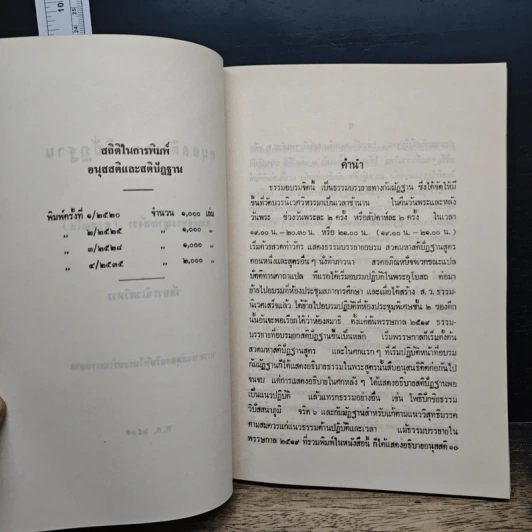 สถิติในการพิมพ์
อนุสสติและสติปัฏฐาน
พิมพ์ครั้งที่ ๑/๒๕๒๐ จำนวน ๑,๐๐๐ เล่ม
" ๒/๒๕๒๕ " ๑,๐๐๐ "
" ๓/๒๕๒๘ " ๑,๐๐๐ "
" ๔/๒๕๓๕ " ๒,๐๐๐ "
คำนำ
ธรรมอบรมจิตนี้ เป็นธรรมบรรยายทางกัมมัฏฐาน ซึ่งได้จัดให้มี
ขึ้นที่วัดบวรนิเวศวิหารมาเป็นเวลาช้านาน ในคืนวันพระและหลัง
วันพระ ช่วงวันพระละ ๒ ครั้ง หรือสัปดาห์ละ ๒ ครั้ง ในเวลา
๑๙.๐๐ น. - ๒๐.๓๐ น. หรือ ๒๑.๐๐ น. (๑๙.๐๐ น. - ๒๑.๐๐ น.)
เริ่มด้วยสวดทำวัตร แสดงธรรมบรรยายอบรม สวดมหาสติปัฏฐานสูตร
ตอนหนึ่งและสูตรอื่นๆ นั่งทำภาวนา สวดอภิณหปัจจเวกขณะแปล
ปัตติทานคาถาแปล ที่แรกได้เริ่มอบรมปฏิบัติในพระอุโบสถ ต่อมา
ย้ายไปอบรมที่ห้องประชุมสภาการศึกษา และเมื่อได้สร้าง ส. ว. ธรรม-
นิเวศเสร็จแล้ว ได้ย้ายไปอบรมปฏิบัติที่ห้องประชุมพิเศษชั้น ๒ ของตึก
นั้นอันจะพอเรียกได้ว่าห้องสมาธิ ตั้งแต่ต้นพรรษากาล ๒๕๑๙ ธรรม-
บรรยายที่อบรมยกสติปัฏฐานขึ้นเป็นหลัก เริ่มพรรษากาลก็เริ่มตั้งต้น
สวดมหาสติปัฏฐานสูตร และในศกแรกๆ ที่เริ่มปฏิบัติหน้าที่อบรม
กัมมัฏฐานก็ได้แสดงอธิบายในพระสูตรนั้นสืบอนุสนธิติดต่อกันไป
จนจบ แต่การแสดงอธิบายในศกหลังๆ ได้แสดงอธิบายสติปัฏฐานพอ
เป็นแนวปฏิบัติ แล้วแทรกธรรมอย่างอื่น เช่น โพธิปักขิยธรรม
วิปัสสนาภูมิ จริต ๖ และกัมมัฏฐานสำหรับแก้ตามแนววิสุทธิมรรค
ตามสมควรแก่แนวธรรมด้านปฏิบัติและเวลา แม้ธรรมบรรยายใน
พรรษากาล ๒๕๑๙ ที่รวมพิมพ์ในหนังสือนี้ ก็ได้แสดงอธิบายอนุสสติ ๑๐